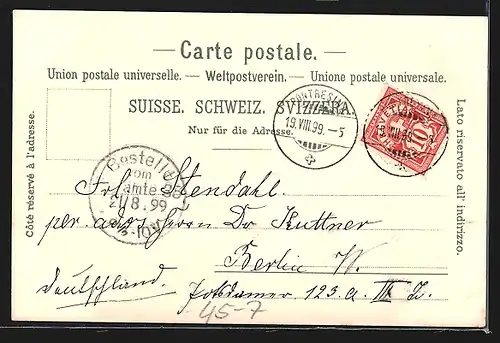 Carte postale.
Union postale universelle. — Weltpostverein. — Unione postale universale.
SUISSE. SCHWEIZ. SVIZZERA.
Nur für die Adresse.
Côté réservé à l'adresse.
Lato riservato all' indirizzo.
PONTRESINA
19.VIII.99.–5
10
Bestellt
vom
Postamte
21/8.99
Stendahl.
per adr. Herrn Dr Kuttner
Berlin W.
Deutschland. Potsdamer 123.a III
45-7